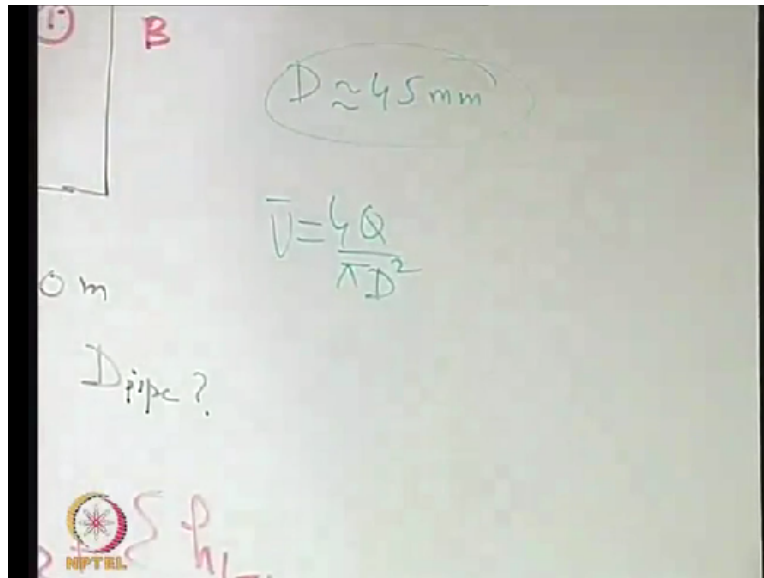 B
D ≈ 45 mm
V̄ = 4Q / πD²
0 m
D pipe ?
Σ h
NPTEL